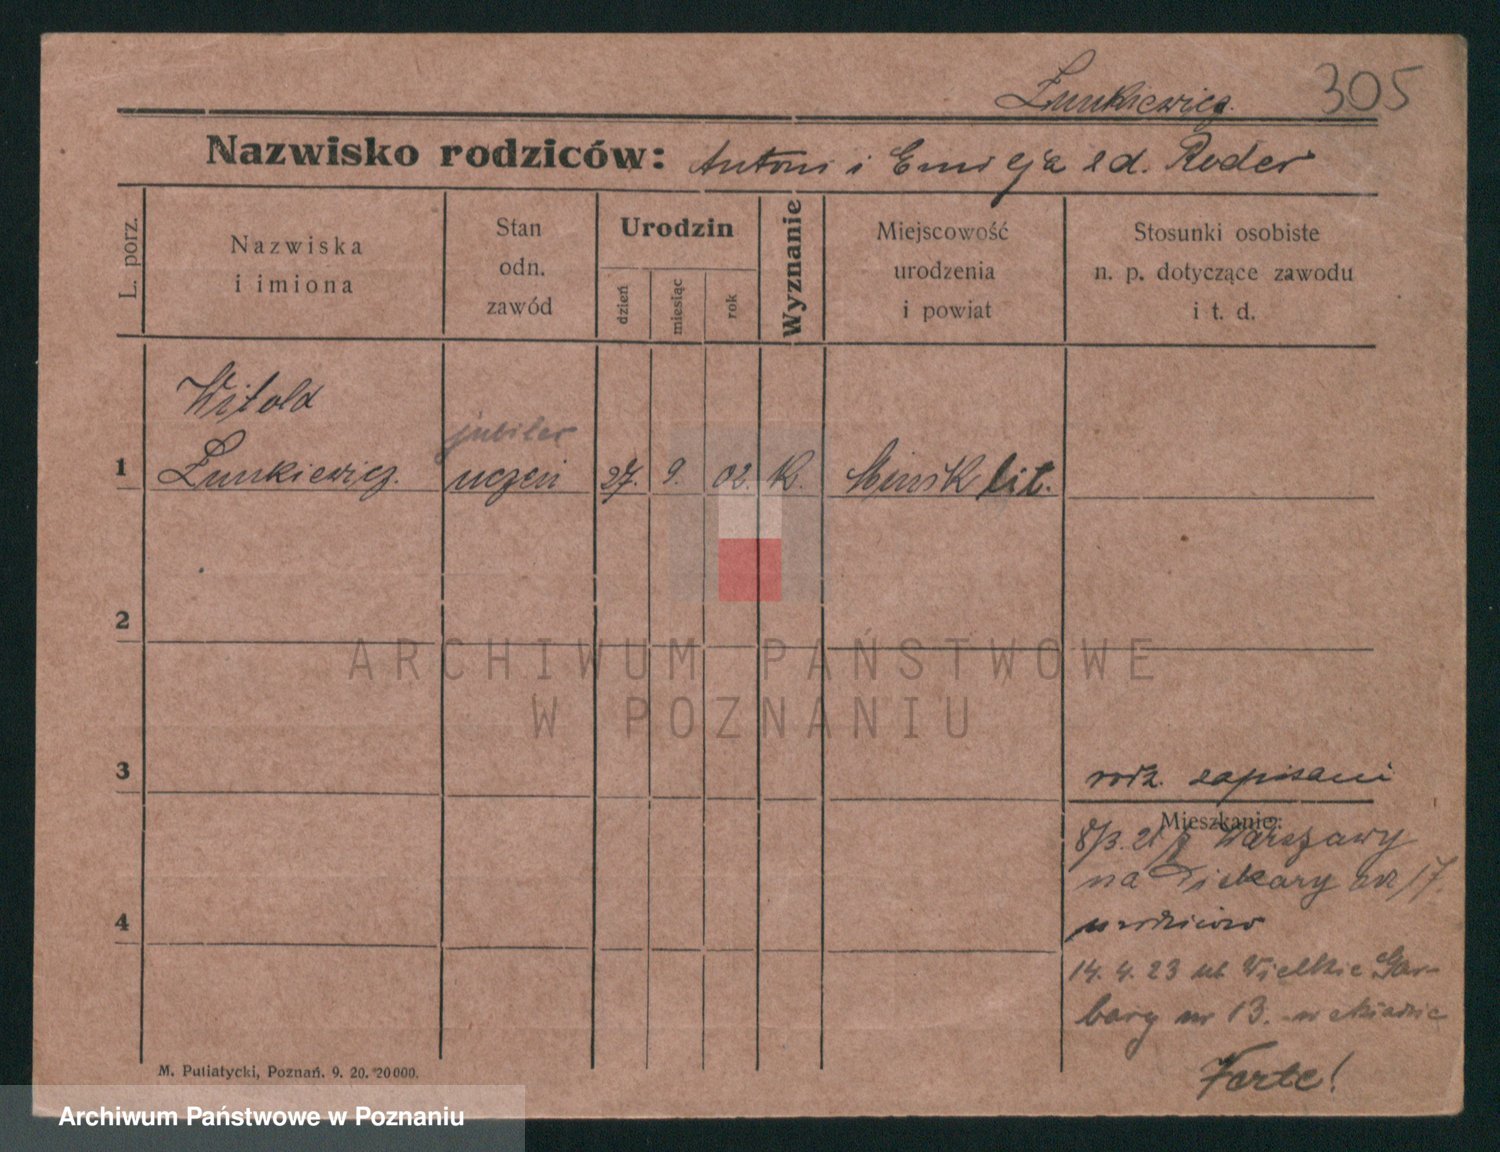 305
Żunkiewicz.
Nazwisko rodziców: Antoni i Emilja z d. Roder
L. porz.
Nazwiska
i imiona
Stan
odn.
zawód
Urodzin
dzień
miesiąc
rok
Wyznanie
Miejscowość
urodzenia
i powiat
Stosunki osobiste
n. p. dotyczące zawodu
i t. d.
Witold
jubiler
1 Żunkiewicz. uczeń 27. 9. 02. K. Mińsk lit.
2
ARCHIWUM PAŃSTWOWE
W POZNANIU
3
rodz. zapisani
Mieszkanie:
8/3. 21 z Warszawy
na Piekary nr 17.
4
u rodziców
14. 4. 23 ul. Wielkie Gar-
bary nr 13.
Verte!
M. Putiatycki, Poznań. 9. 20. 20000.
Archiwum Państwowe w Poznaniu